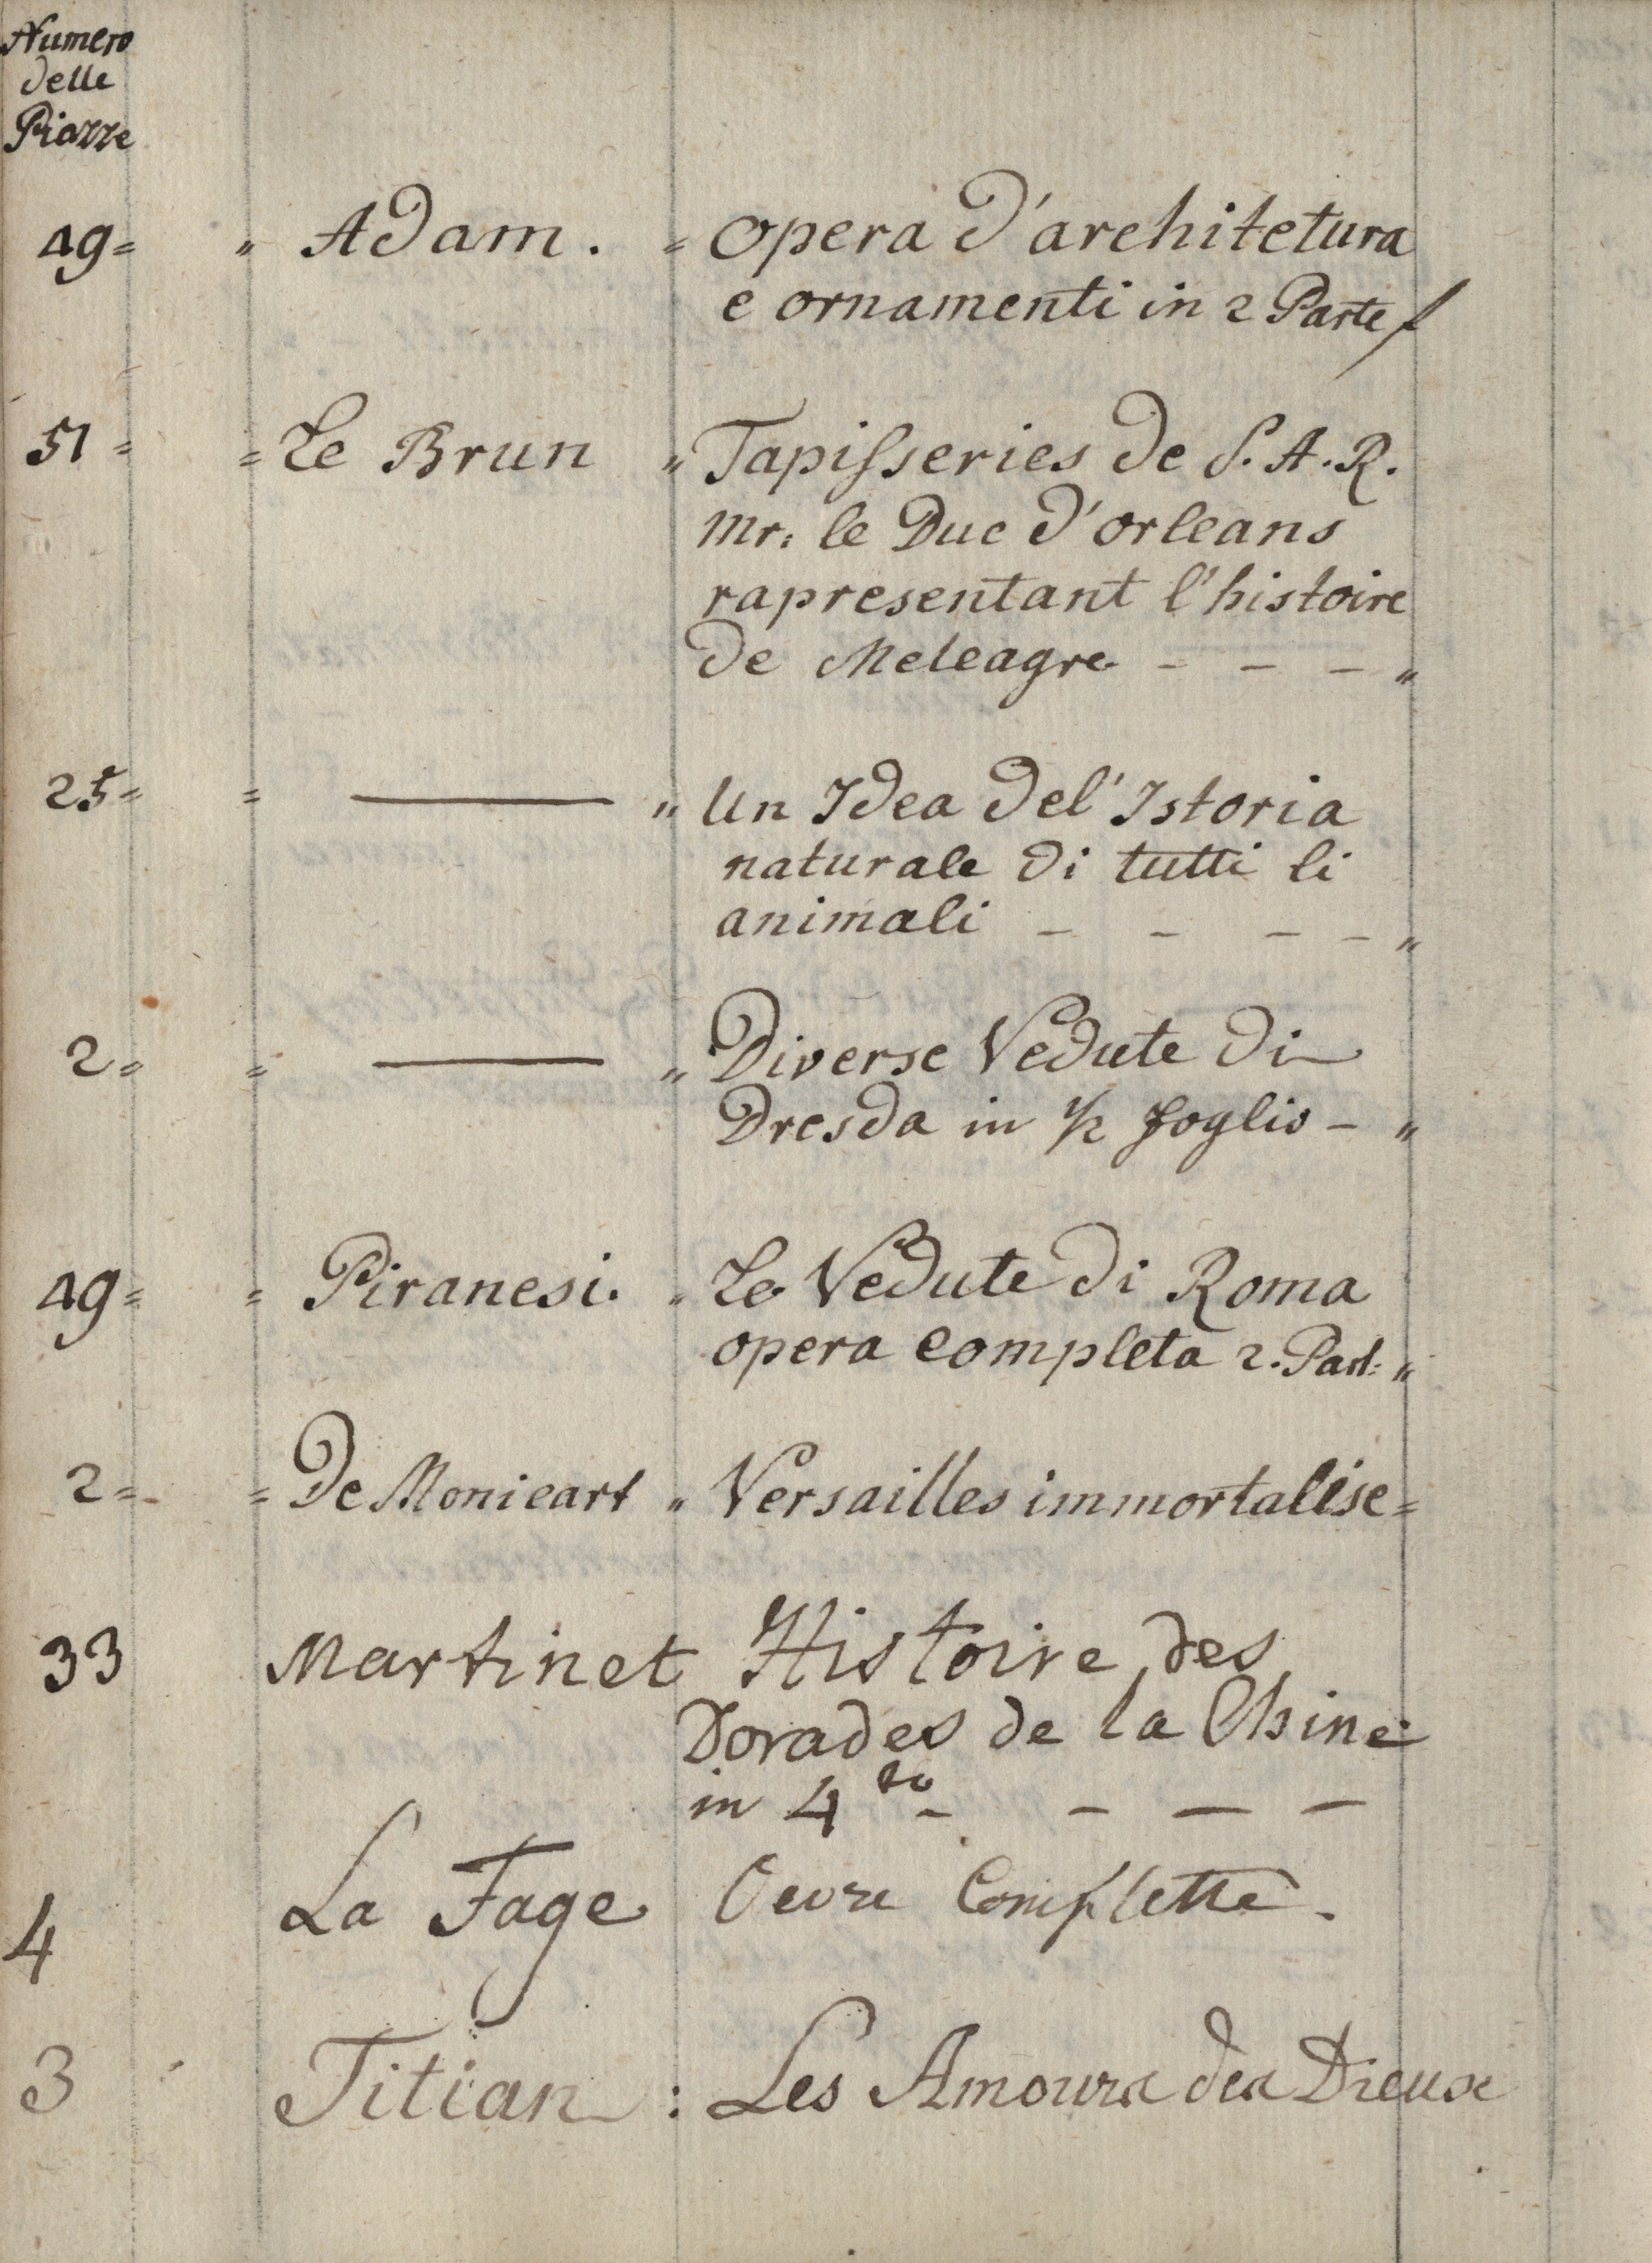 Numero
delle
Piazze
49= " Adam. = opera d'architetura
e ornamenti in 2 Parte
51 = = Le Brun " Tapisseries de S. A. R.
Mr: le Duc d'orleans
rapresentant l'histoire
de Meleagre - - - "
25= = — " Un Idea del' Istoria
naturale di tutti li
animali - - - - "
2= = — " Diverse Vedute di
Dresda in 1/2 foglio - "
49= = Piranesi. " Le Vedute di Roma
opera completa 2. Part: "
2= = De Monicart " Versailles immortalise=
33 Martinet Histoire des
Dorades de la Chine
in 4to - - - -
4 La Fage Oevre Complette.
3 Titian : Les Amours des Dieux